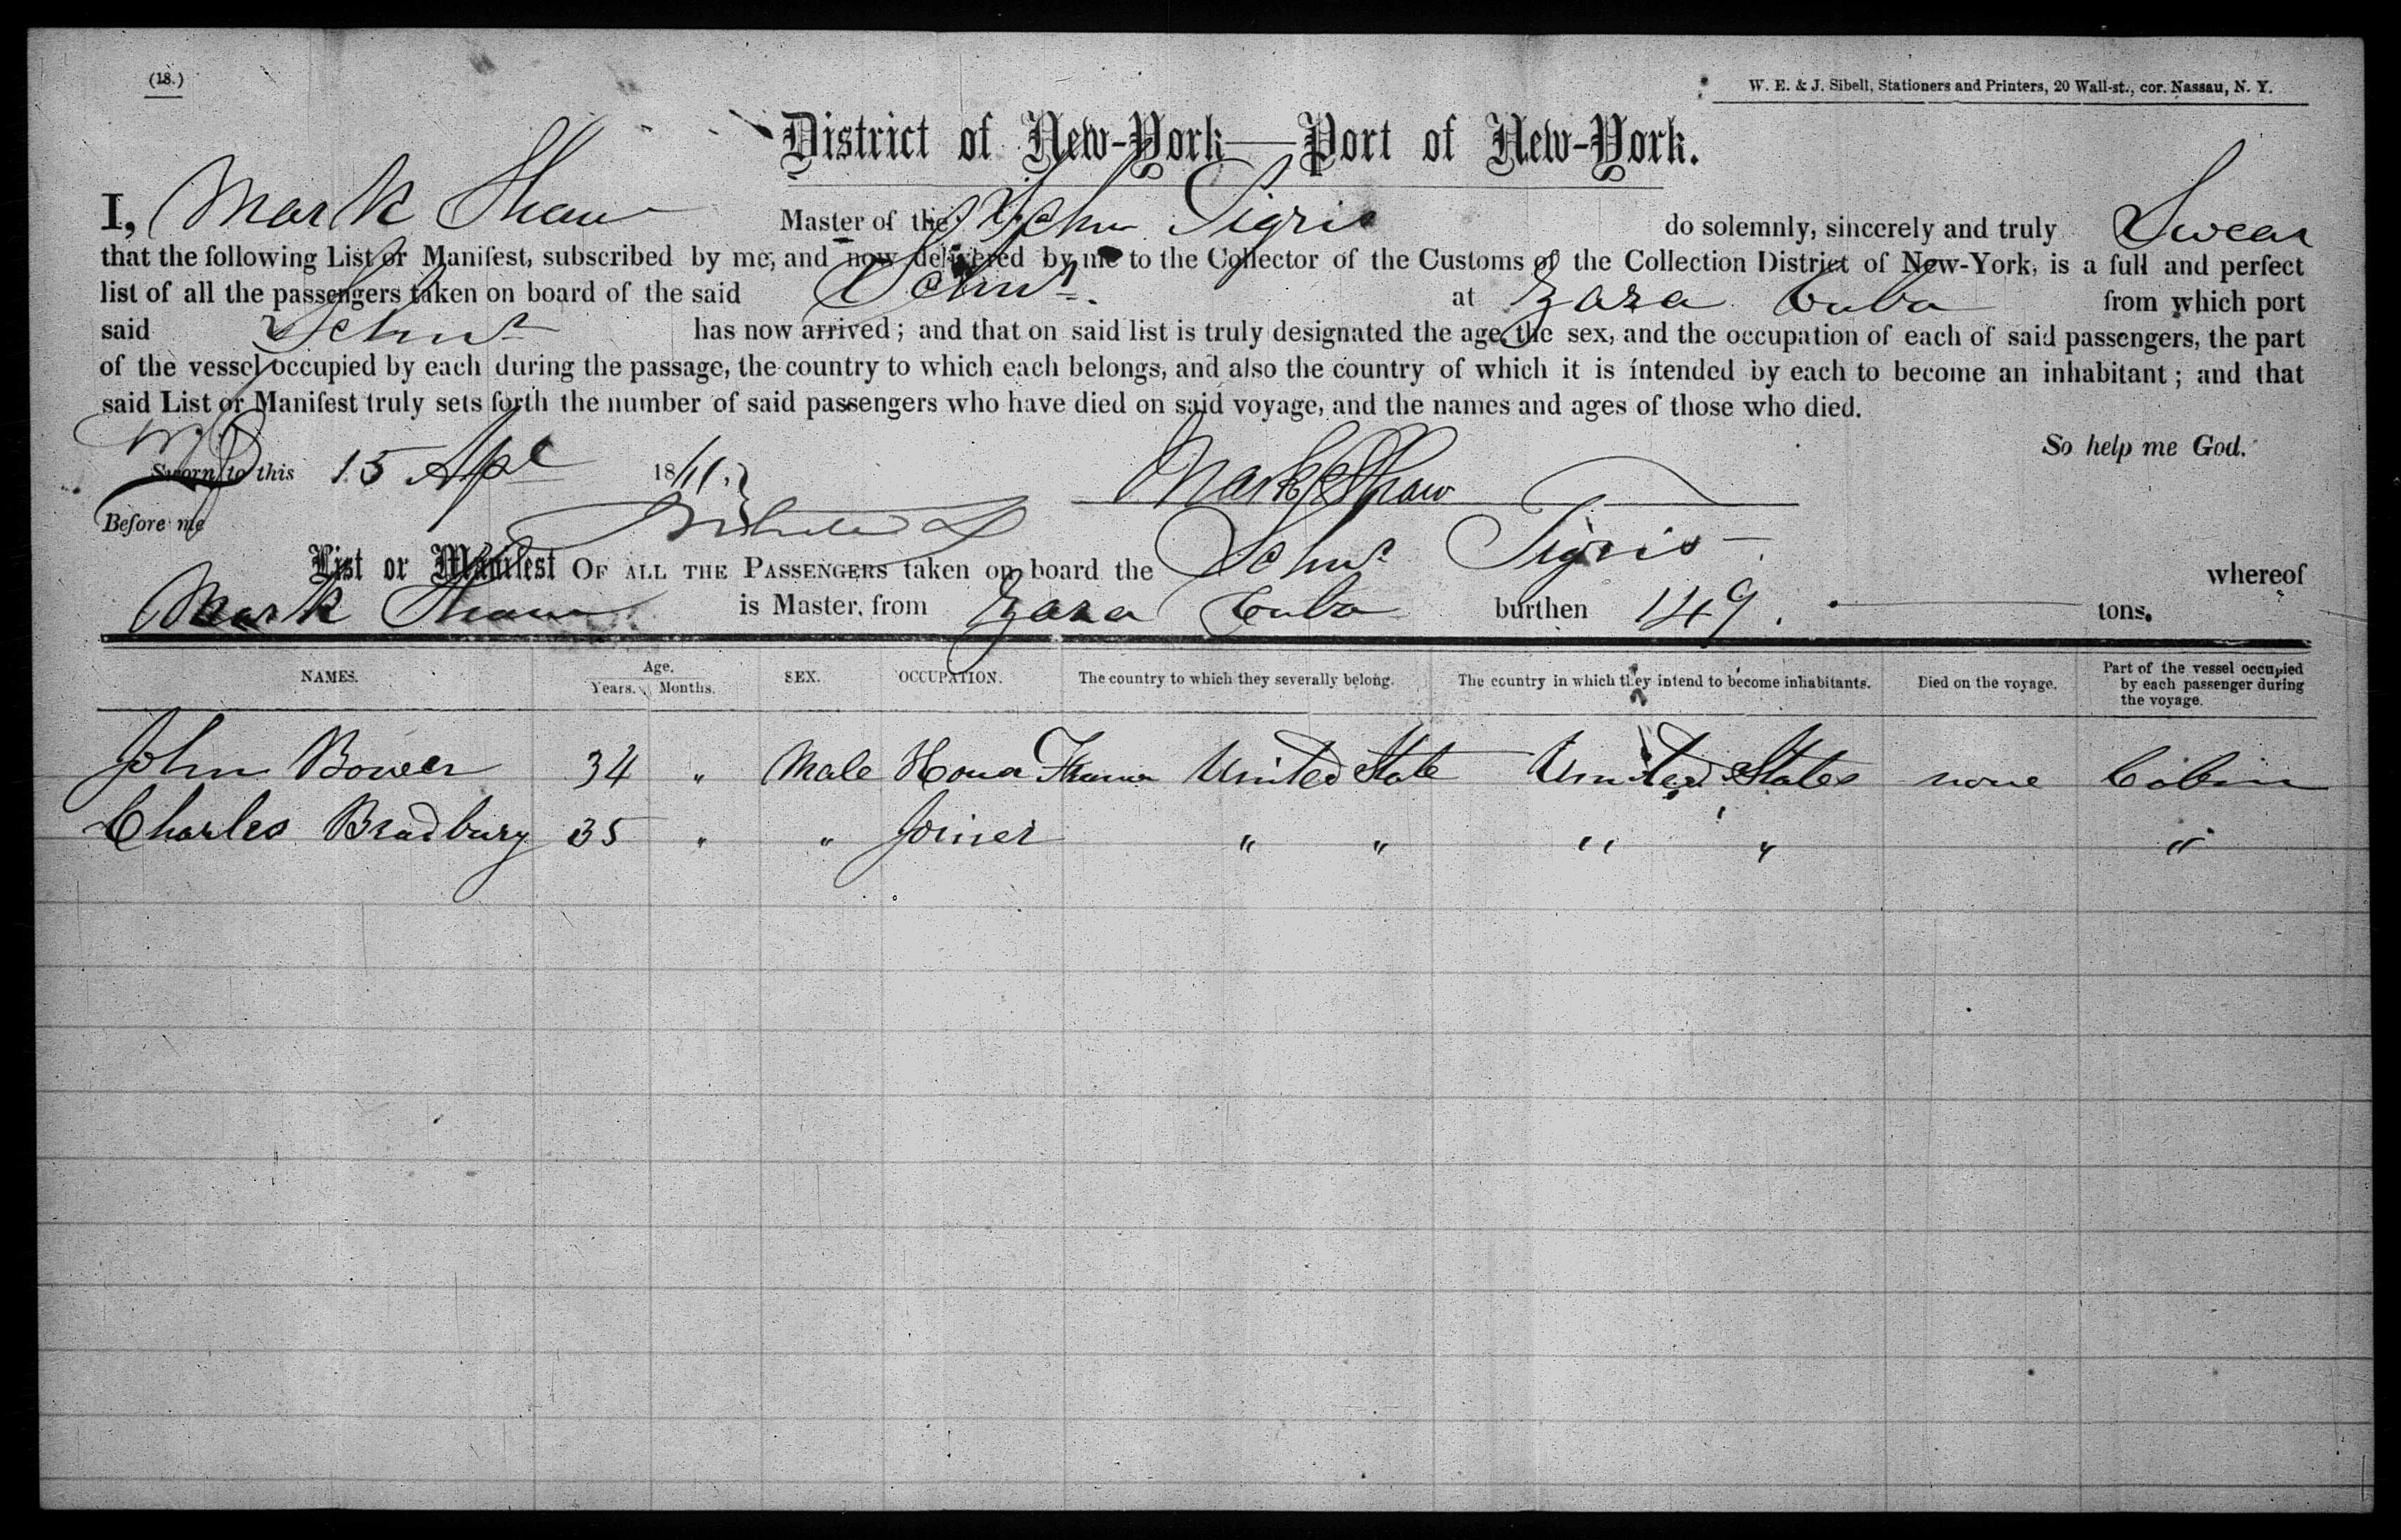 (18.)
W. E. & J. Sibell, Stationers and Printers, 20 Wall-st., cor. Nassau, N. Y.
District of New-York—Port of New-York.
I, Mark Shaw Master of the Schr Tigris do solemnly, sincerely and truly Swear
that the following List or Manifest, subscribed by me, and now delivered by me to the Collector of the Customs of the Collection District of New-York, is a full and perfect
list of all the passengers taken on board of the said Schr. at Zaza Cuba from which port
said Schr has now arrived; and that on said list is truly designated the age, the sex, and the occupation of each of said passengers, the part
of the vessel occupied by each during the passage, the country to which each belongs, and also the country of which it is intended by each to become an inhabitant; and that
said List or Manifest truly sets forth the number of said passengers who have died on said voyage, and the names and ages of those who died.
So help me God.
Sworn to this 15 Apl 18 Mark Shaw
Before me
List or Manifest OF ALL THE PASSENGERS taken on board the Schr Tigris whereof
Mark Shaw is Master, from Zaza Cuba burthen 149. tons.
NAMES. Age. Years. Months. SEX. OCCUPATION. The country to which they severally belong. The country in which they intend to become inhabitants. Died on the voyage. Part of the vessel occupied by each passenger during the voyage.
John Bower 34 " Male United State United States none Cabin
Charles Bradbury 35 " " Joiner " " " " "